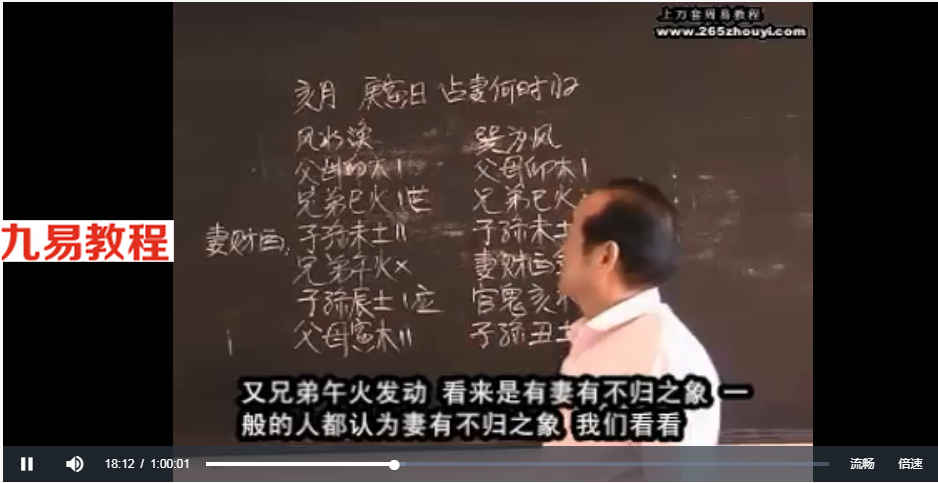 上万套周易教程
www.265zhouyi.com
亥月 庚寅日 占妻何时归
风水涣 巽为风
父母卯木 父母卯木
兄弟巳火 世 兄弟巳火
九易教程
妻财酉 子孙未土 子孙未土
兄弟午火 × 妻财酉金
子孙辰土 应 官鬼亥
父母寅木 子孙丑土
又兄弟午火发动 看来是有妻有不归之象 一
般的人都认为妻有不归之象 我们看看
18:12 / 1:00:01
流畅 倍速